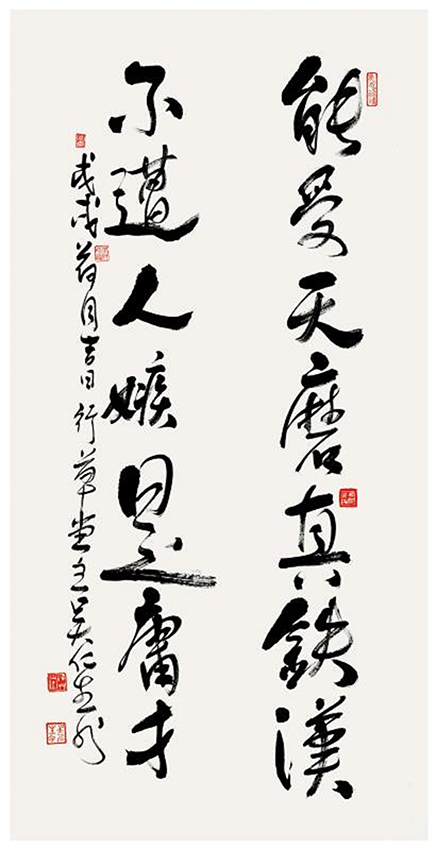 能受天磨真鉄漢
不遭人嫉是庸才
戊戌荷月吉日行草堂主吴仁生书